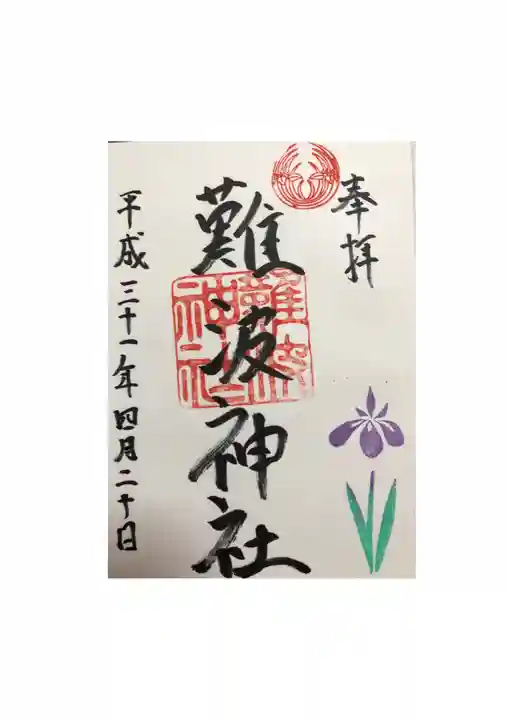 奉拝
難波神社
難波神社
平成三十一年四月二十日